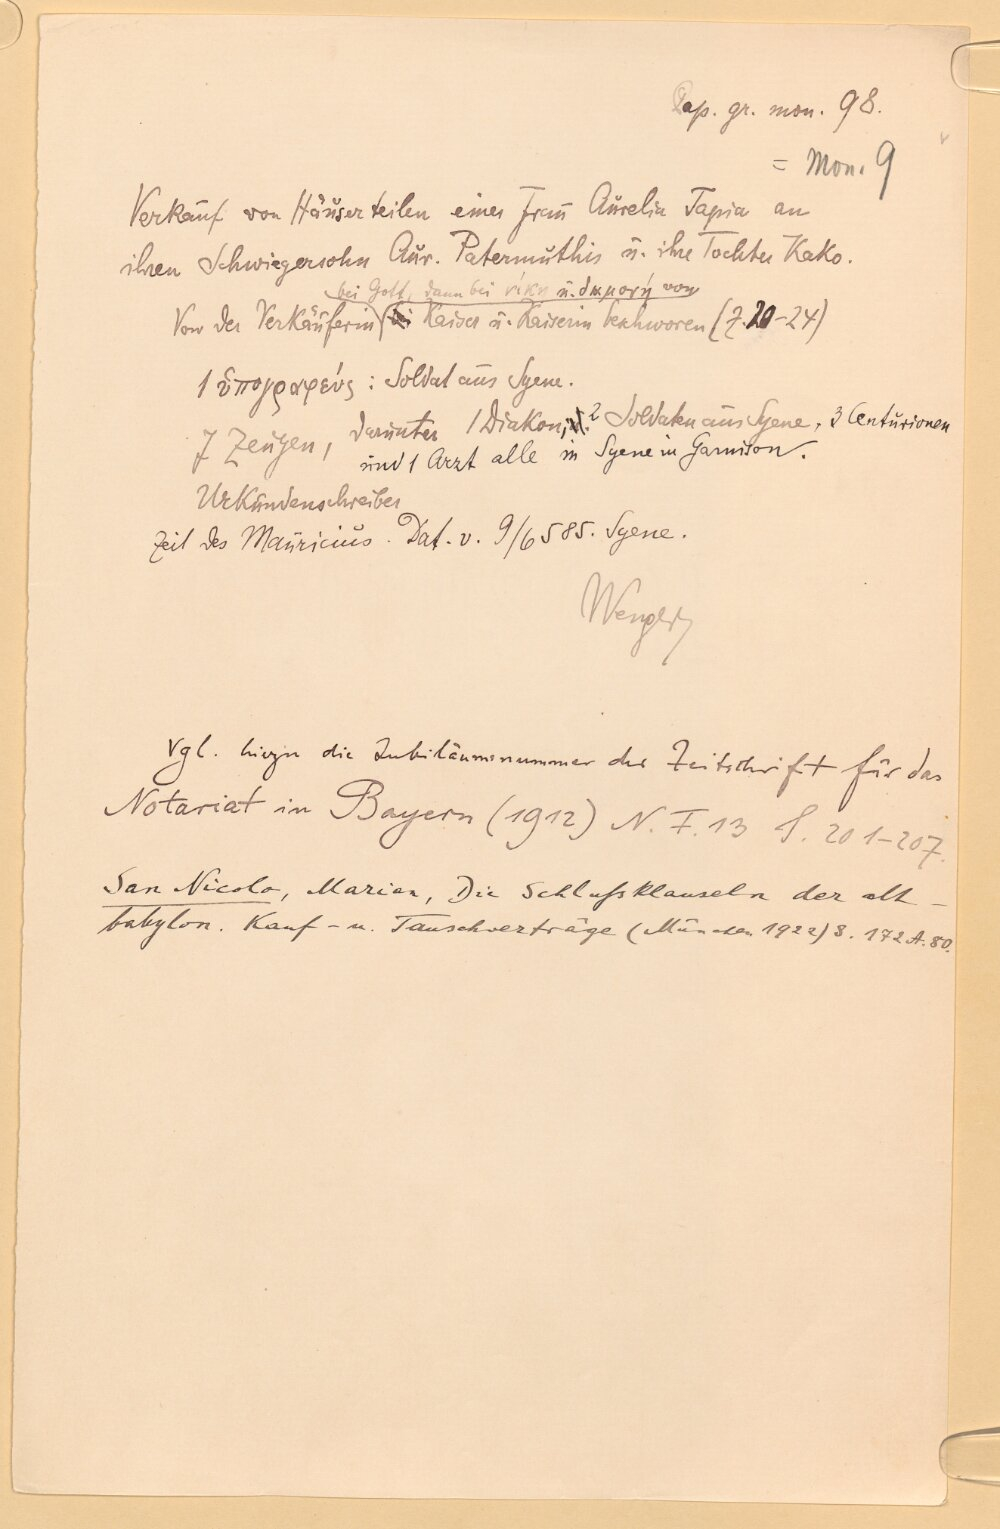 Pap. gr. mon. 98.
= Mon. 9
Verkauf von Häuserteilen einer Frau Aurelia Tapia an
ihren Schwiegersohn Aur. Patermuthis u. ihre Tochter Kako.
bei Gott, dann bei νίκη u. διαμονή von
Von der Verkäuferin Kaiser u. Kaiserin beschworen (Z. 20-24)
1 ὑπογραφεύς: Soldat aus Syene.
7 Zeugen, darunter 1 Diakon, 2 Soldaten aus Syene, 3 Centurionen
und 1 Arzt alle in Syene in Garnison.
Urkundenschreiber
Zeit des Mauricius. Dat. v. 9/6 585. Syene.
Wenger
Vgl. hiezu die Jubiläumsnummer der Zeitschrift für das
Notariat in Bayern (1912) N. F. 13 S. 201-207.
San Nicolo, Marian, Die Schlußklauseln der alt-
babylon. Kauf- u. Tauschverträge (München 1922) S. 172 A. 80.